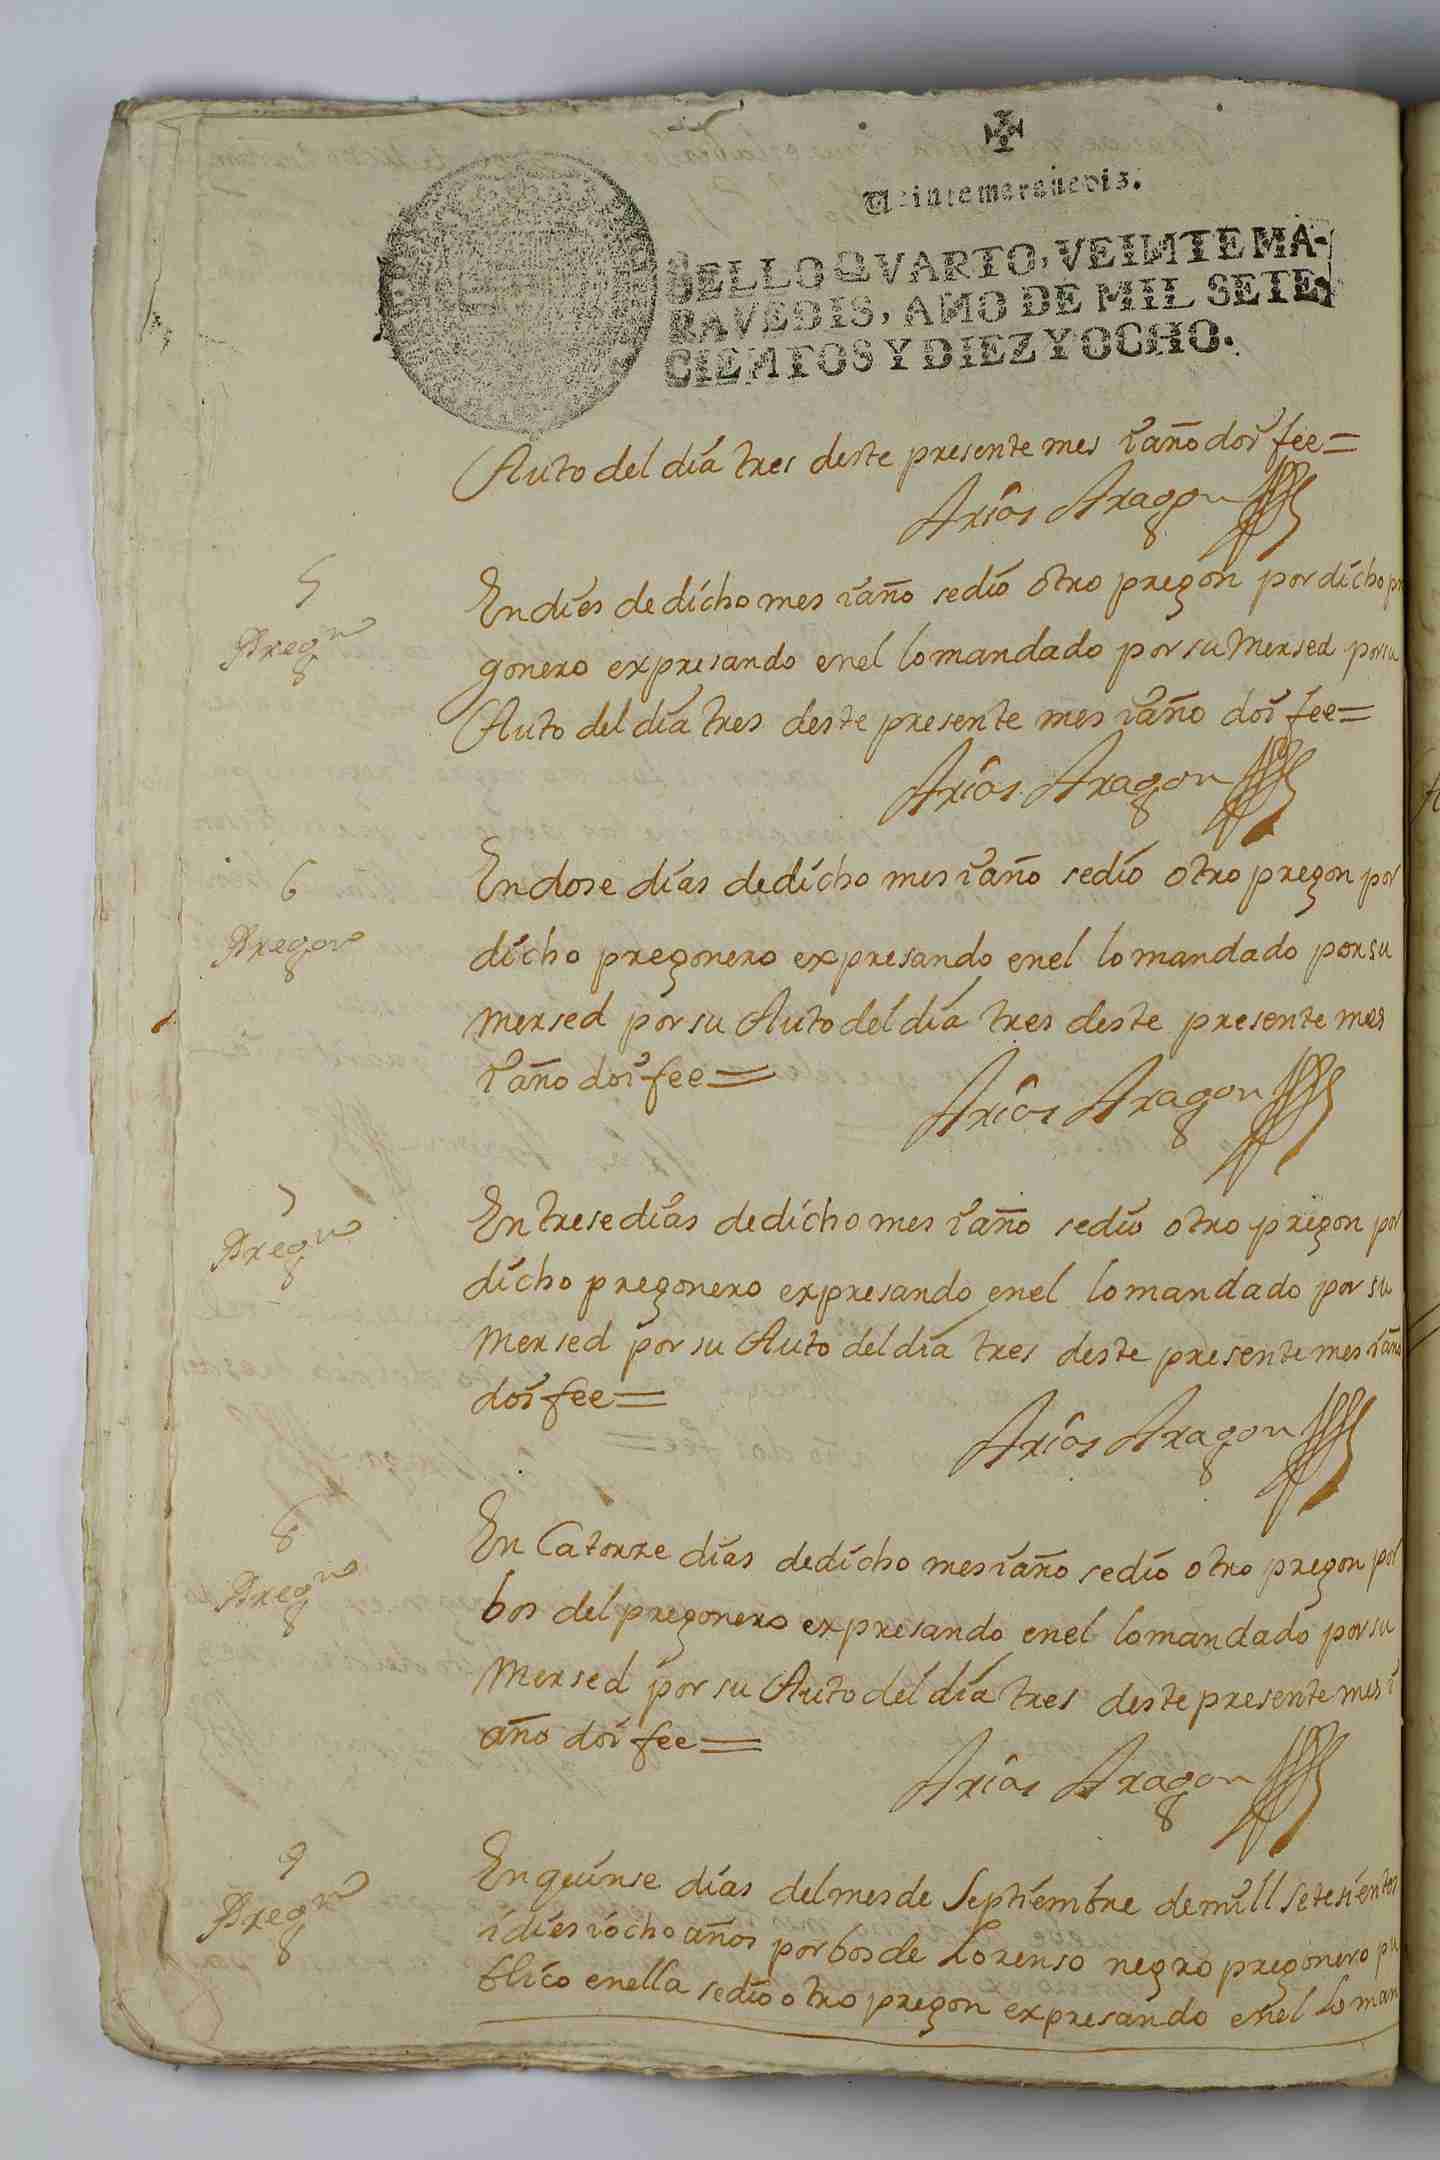 ✠
Veinte marauedis.
SELLO QVARTO, VEINTE MA-
RAVEDIS, AÑO DE MIL SETE-
CIENTOS Y DIEZ Y OCHO.
Auto del día tres deste presente mes iaño doi fee=
Arias Aragon
5
Pregon
En dies de dicho mes iaño sedio otro pregon por dicho pre
gonero expresando enel lo mandado por su Mersed por su
Auto del dia tres deste presente mes iaño doi fee=
Arias Aragon
6
Pregon
En dose dias de dicho mes iaño sedio otro pregon por
dicho pregonero expresando enel lo mandado por su
mersed por su Auto del dia tres deste presente mes
iaño doi fee=
Arias Aragon
7
Pregon
En trese dias de dicho mes iaño sedio otro pregon por
dicho pregonero expresando enel lo mandado por su
Mersed por su Auto del dia tres deste presente mes iaño
doi fee=
Arias Aragon
8
Pregon
En Catorze dias de dicho mes iaño sedio otro pregon por
bos del pregonero expresando enel lo mandado por su
Mersed por su Auto del dia tres deste presente mes i
año doi fee=
Arias Aragon
9
Pregon
En quinse dias del mes de Septiembre de mill setesientos
i dies i ocho años por bos de Lorenso negro pregonero pu
blico enella sedio otro pregon expresando enel lo man